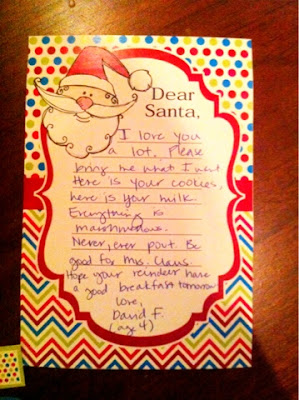 Dear
Santa,
I love you
a lot. Please
bring me what I want
Here is your cookies,
here is your milk.
Everything is
marshmellows.
Never, ever pout. Be
good for Mrs. Claus.
Hope your reindeer have
a good breakfast tomorrow
Love,
David F.
(age 4)